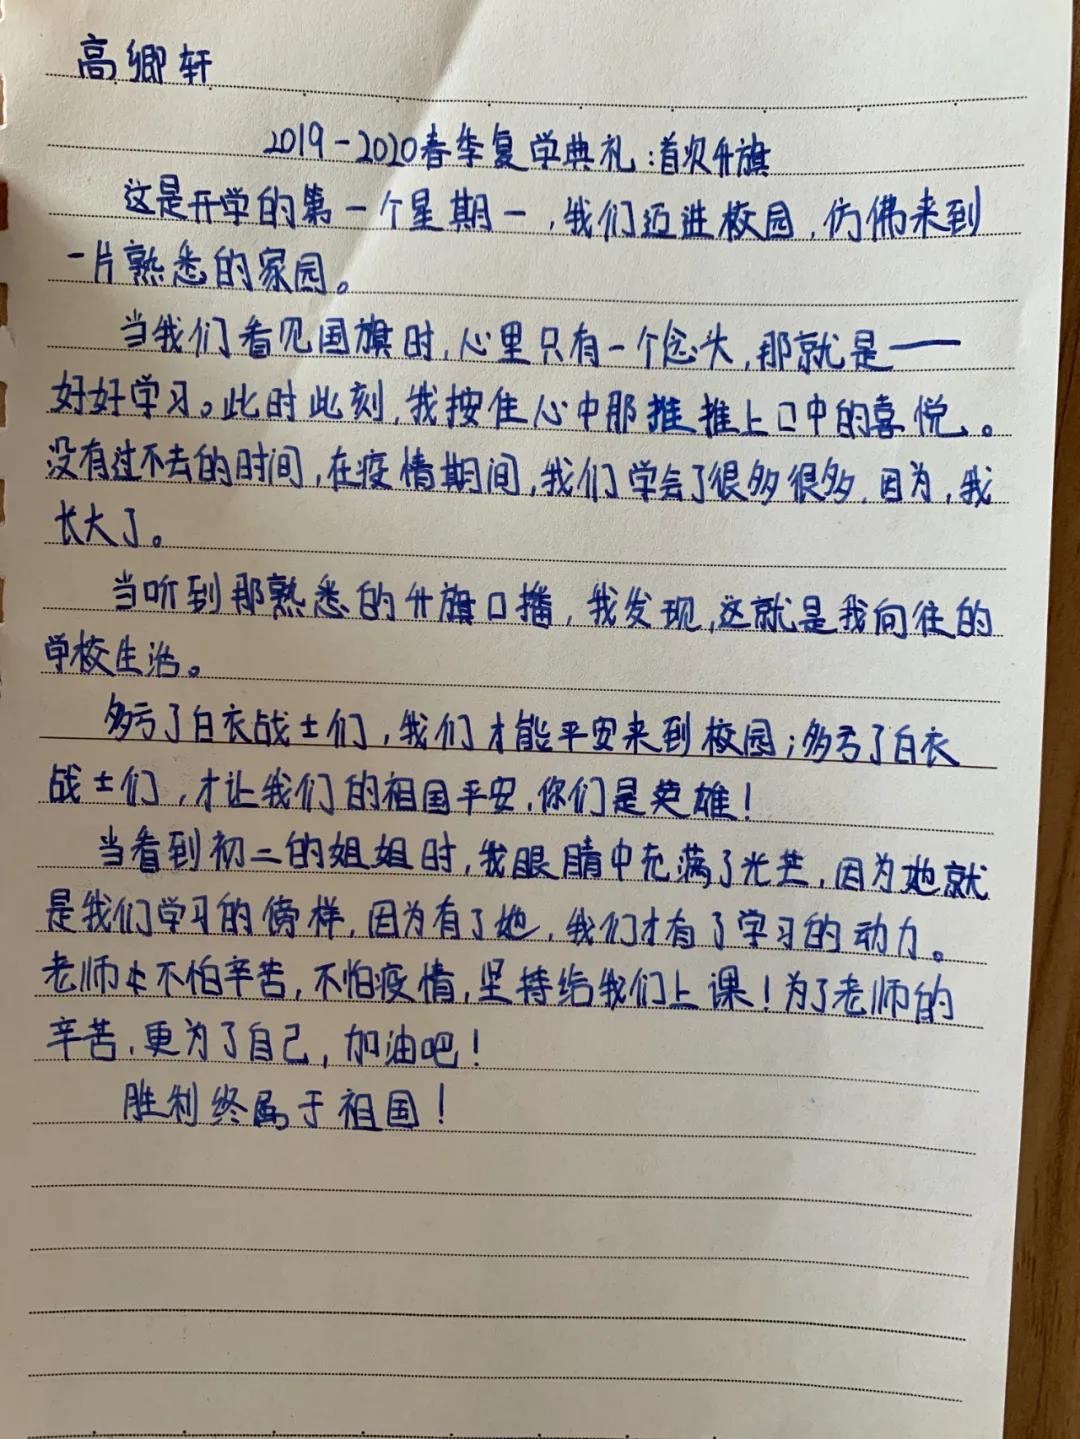 高卿轩
2019-2020春季复学典礼:首次升旗
这是开学的第一个星期一,我们迈进校园,仿佛来到
一片熟悉的家园。
当我们看见国旗时,心里只有一个念头,那就是——
好好学习。此时此刻,我按住心中那推推上口中的喜悦、。
没有过不去的时间,在疫情期间,我们学会了很多很多,因为,我
长大了。
当听到那熟悉的升旗口播,我发现,这就是我向往的
学校生活。
多亏了白衣战士们,我们才能平安来到校园;多亏了白衣
战士们,才让我们的祖国平安,你们是英雄!
当看到初二的姐姐时,我眼睛中充满了光芒,因为她就
是我们学习的傍样,因为有了她,我们才有了学习的动力。
老师不怕辛苦,不怕疫情,坚持给我们上课!为了老师的
辛苦,更为了自己,加油吧!
胜利终属于祖国!